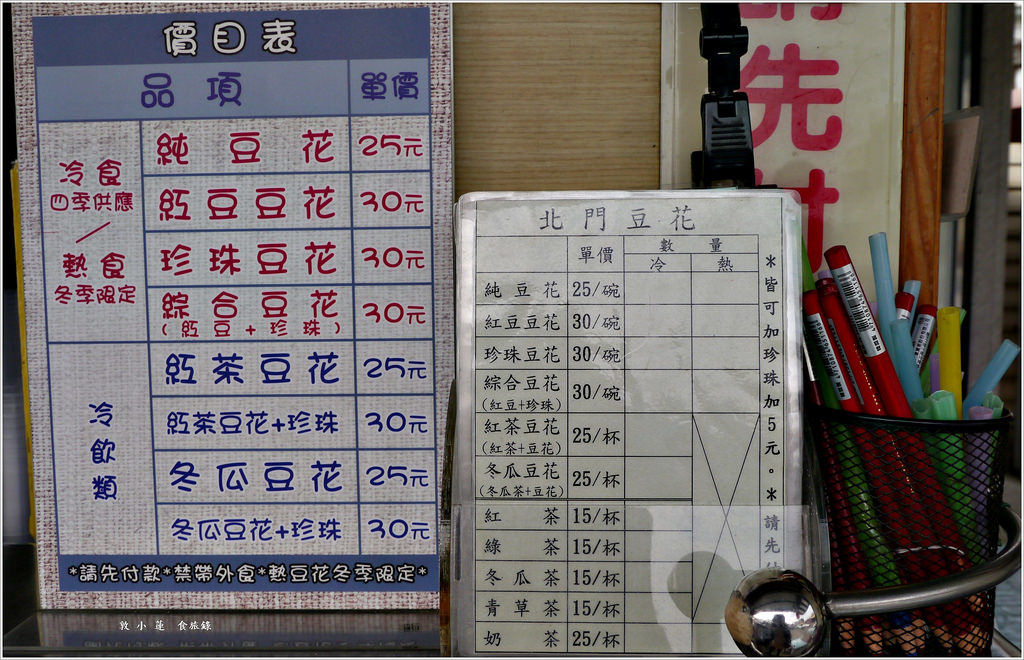 價目表
品項 單價
冷食
四季供應
／
熱食
冬季限定
純豆花 25元
紅豆豆花 30元
珍珠豆花 30元
綜合豆花 30元
(紅豆+珍珠)
冷飲類
紅茶豆花 25元
紅茶豆花+珍珠 30元
冬瓜豆花 25元
冬瓜豆花+珍珠 30元
*請先付款*禁帶外食*熱豆花冬季限定*
敦小蓮 食旅錄
北門豆花
單價 數量
冷 熱
純豆花 25/碗
紅豆豆花 30/碗
珍珠豆花 30/碗
綜合豆花 30/碗
(紅豆+珍珠)
紅茶豆花 25/杯
(紅茶+豆花)
冬瓜豆花 25/杯
(冬瓜茶+豆花)
紅茶 15/杯
綠茶 15/杯
冬瓜茶 15/杯
青草茶 15/杯
奶茶 25/杯
*皆可加珍珠加5元。*請先
先付